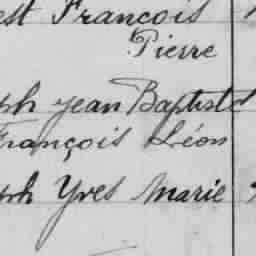 est François
Pierre
ph Jean Baptiste
François Léon
ph Yves Marie